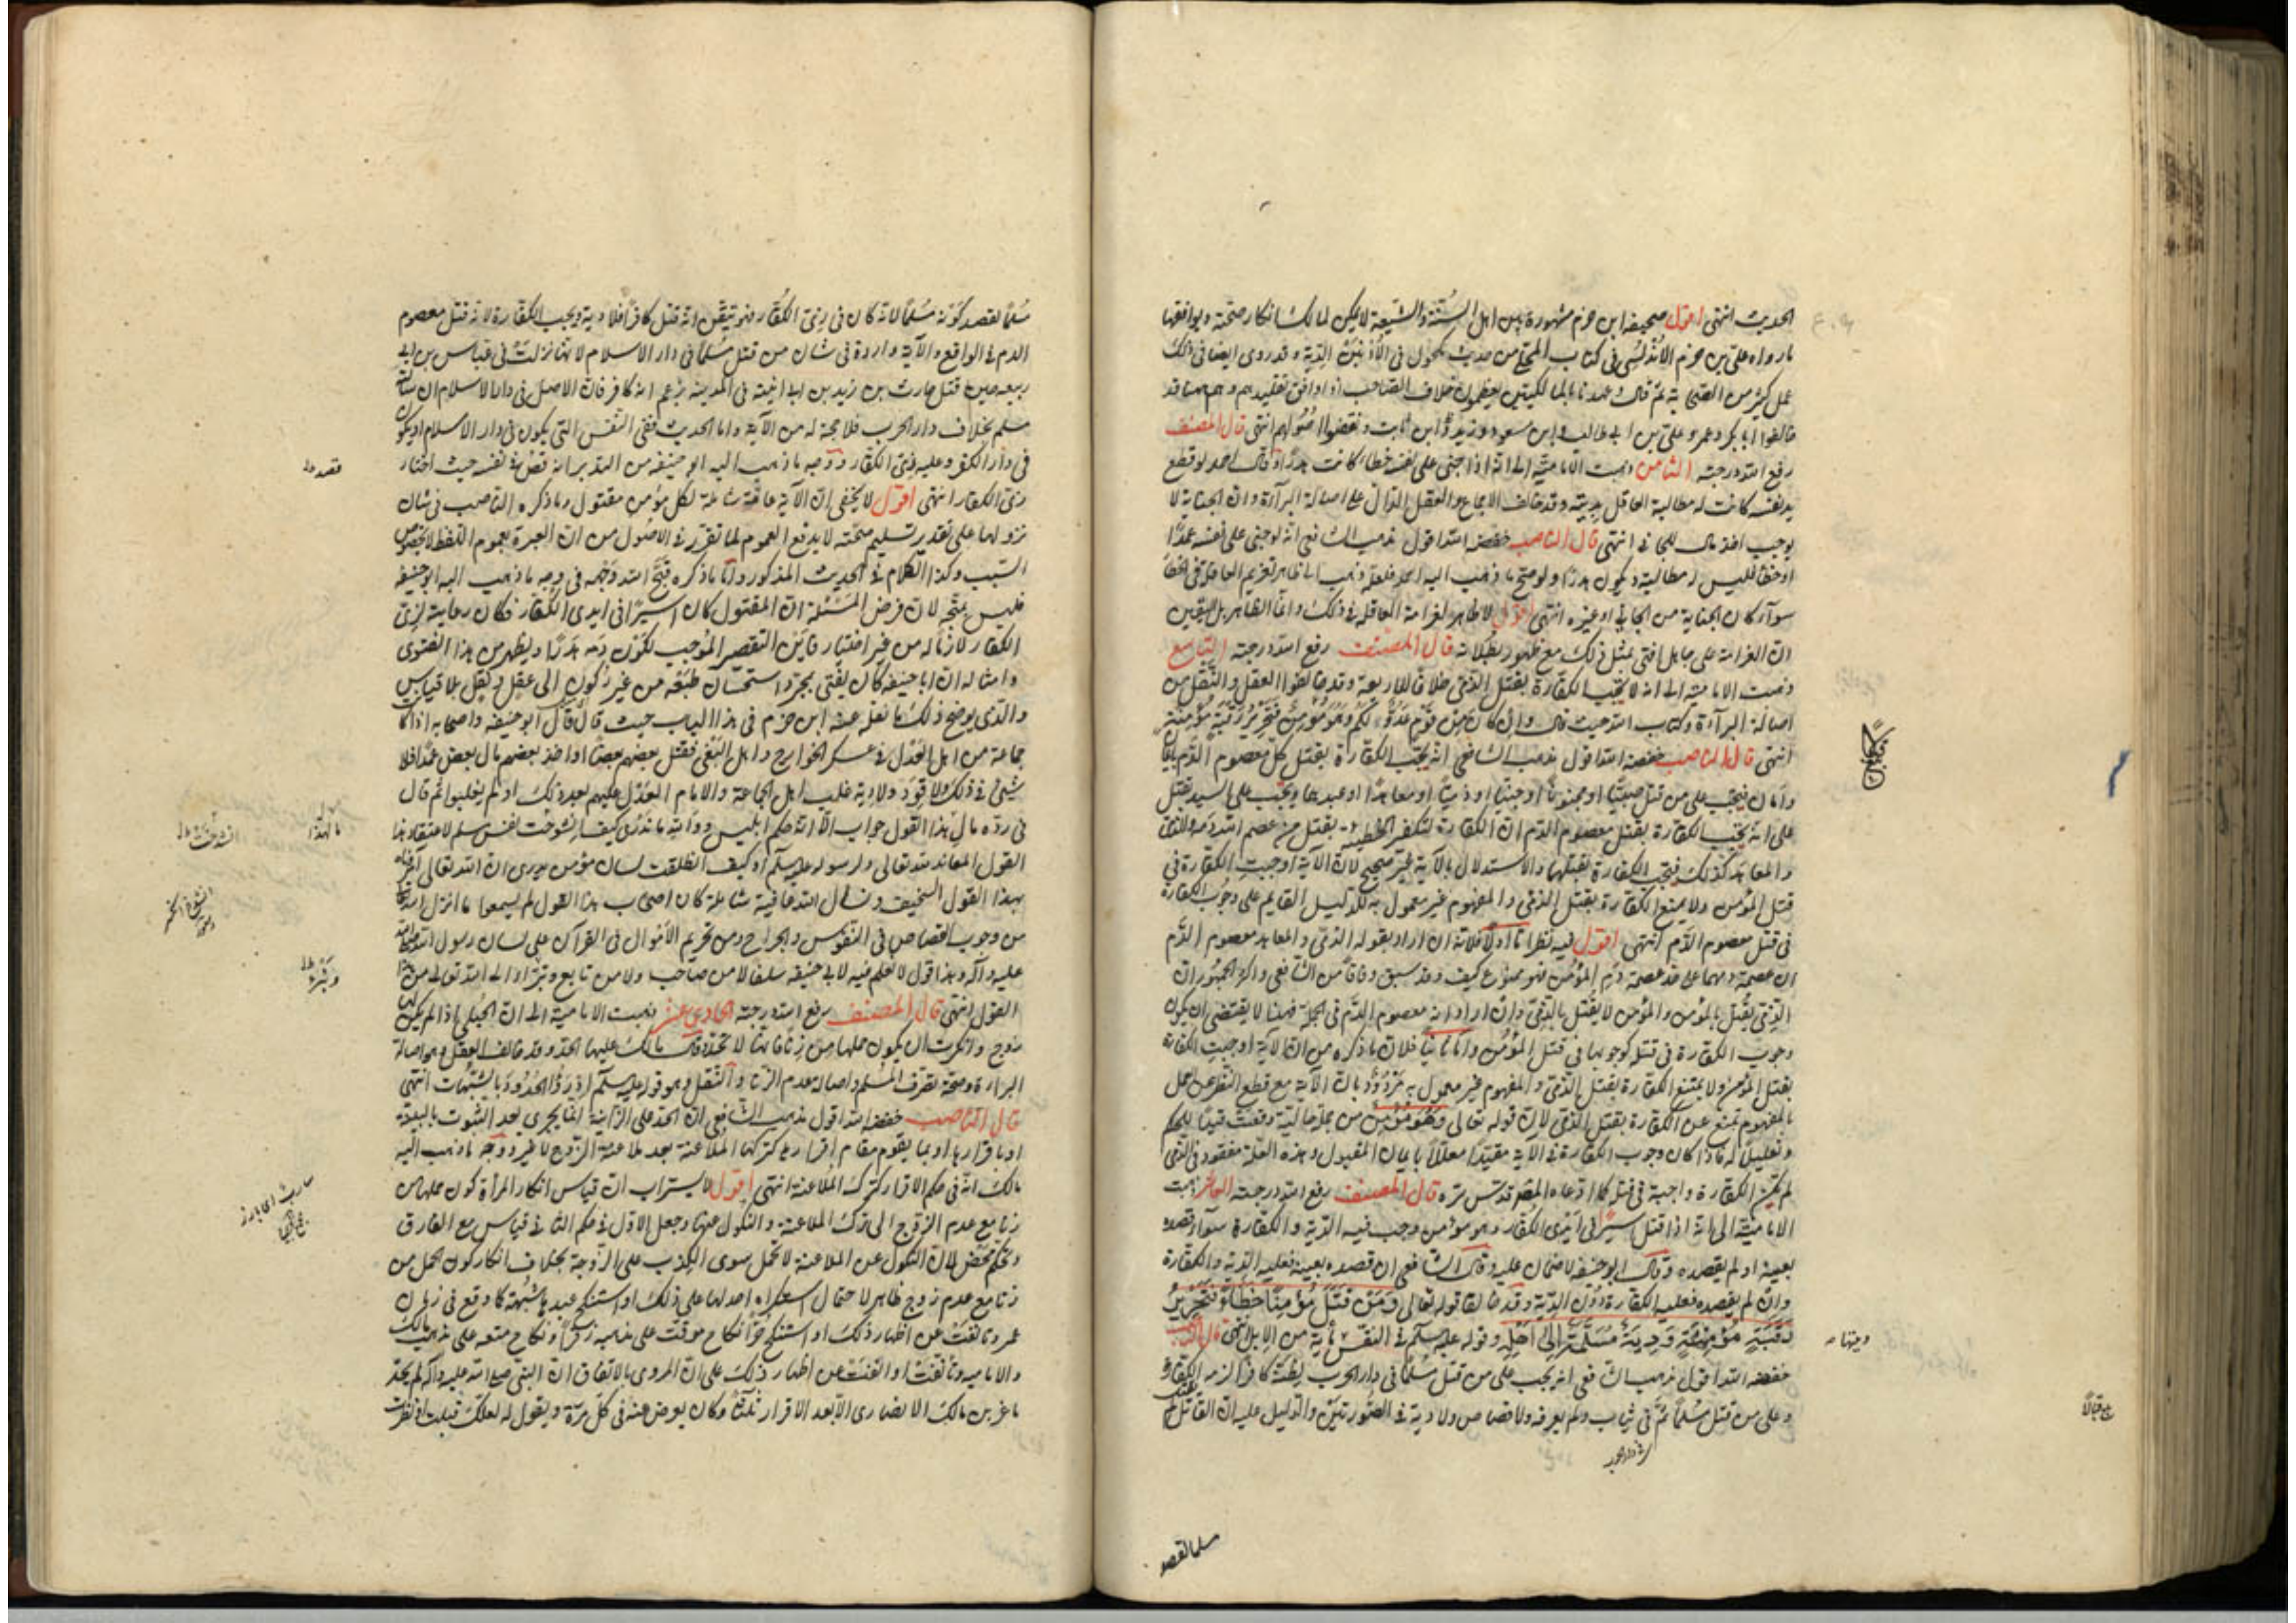 الحديث انتهى اقول صحيفة ابن حزم مشهورة بين اهل السنة والشيعة لا يمكن لمالك انكار صحته ويوافقها
ما رواه علي بن حزم الاندلسي في كتاب المحلى من حديث مكحول في الاذنين الدية وقد روى ايضا في ذلك
عمل كثير من الصحابة ثم قال وعهدنا بالمالكيين يعظمون خلاف الصاحب اذا وافق تقليدهم وهم ههنا قد
خالفوا ابا بكر وعمر وعلي بن ابي طالب وابن مسعود وزيد ابن ثابت ونقضوا اصولهم انتهى قال المصنف
رفع الله درجته الثامن ذهبت الامامية الى انه اذا جنى على نفسه خطأ كانت هدرا وقال احمد لو قطع
يد نفسه كانت له مطالبة العاقل بديته وقد خالف الاجماع والعقل الدال على اصالة البرآءة وان الجناية لا
يوجب اخذ مال للجاني انتهى قال الناصب خفضه الله اقول مذهب الشافعي انه لو جنى على نفسه عمدا
او خطأ فليس له مطالبة ويكون هدرا ولو صح ما ذهب اليه احمد فلعله ذهب الى ظاهر تغريم العاقلة في الخطأ
سوآء كان الجناية من الجاني او غيره انتهى اقول لا ظاهر لغرامة العاقله في ذلك وانما الظاهر بل اليقين
ان الغرامة على جاهل افتى بمثل ذلك مع ظهور بطلانه قال المصنف رفع الله درجته التاسع
ذهبت الامامية الى انه لا يجب الكفارة بقتل الذمي خلافا للاربعة وقد خالفوا العقل والنقل من
اصالة البرآءة وكتاب الله حيث قال وان كان من قوم عدو لكم وهو مؤمن فتحرير رقبة مؤمنة
انتهى قال الناصب خفضه الله اقول مذهب الشافعي انه يجب الكفارة بقتل كل معصوم الدم
وامان فيجب على من قتل صبيا او مجنونا او جنينا او ذميا او معاهدا او عبدهما ويجب على السيد بقتل
على انه يجب الكفارة بقتل معصوم الدم ان الكفارة لتكفر الخطيئة بقتل من عصم الله دمه والذمي
والمعاهد كذلك فيجب الكفارة بقتلهما والاستدلال بالآية غير صحيح لان الآية اوجبت الكفارة في
قتل المؤمن ولا يمنع الكفارة بقتل الذمي والمفهوم غير معمول به للدليل القايم على وجوب الكفارة
في قتل معصوم الدم انتهى اقول فيه نظر اما اولا فلانه ان اراد بقوله الذمي والمعاهد معصوم الدم
ان عصمة دمهما على حد عصمة دم المؤمن فهو ممنوع كيف وقد سبق وفاقا من الشافعي واكثر الجمهور ان
الذمي يقتل بالمؤمن والمؤمن لا يقتل بالذمي وان اراد انه معصوم الدم في الجملة فهذا لا يقتضي ان يكون
وجوب الكفارة في قتله كوجوبها في قتل المؤمن واما ثانيا فلان ما ذكره من ان الآية اوجبت الكفارة
بقتل المؤمن ولا يمتنع الكفارة بقتل الذمي والمفهوم غير معمول به مردود بان الآية مع قطع النظر عن العمل
بالمفهوم تمنع عن الكفارة بقتل الذمي لان قوله تعالى وهو مؤمن من جملة حالية وقعت قيدا للحكم
وتعليلا له فاذا كان وجوب الكفارة في الآية مقيدا معللا بايمان المقتول وهذه العلة مفقود في الذمي
لم تكن الكفارة واجبة في قتله كما ادعاه المصنف قدس سره قال المصنف رفع الله درجته العاشر ذهبت
الامامية الى انه اذا قتل اسيرا في ايدي الكفار وهو مؤمن وجب فيه الدية والكفارة سوآء قصده
بعينه او لم يقصده وقال ابو حنيفة لا ضمان عليه وقال الشافعي ان قصده بعينه فعليه الدية والكفارة
وان لم يقصده فعليه الكفارة دون الدية وقد خالفا قوله تعالى ومن قتل مؤمنا خطأ فتحرير
رقبة مؤمنة ودية مسلمة الى اهله وقوله عليه السلام في النفس مأية من الابل انتهى قال الناصب
خفضه الله اقول مذهب الشافعي انه يجب على من قتل مسلما في دار الحرب يظنه كافرا لزمه الكفارة
وعلى من قتل مسلما ثم في ثياب ولم يعرفه ولا قصاص ولا دية في الصورتين والدليل عليه ان القاتل لم
مسلما لقصد
مسلما لقصد كونه مسلما لانه كان في زي الكفار فهو تيقن انه قتل كافرا فلا دية ويجب الكفارة لانه قتل معصوم
الدم في الواقع والآية واردة في شان من قتل مسلما في دار الاسلام لانها نزلت في عياش بن ابي
ربيعه حين قتل حارث بن زيد بن ابي انيسة في المدينة بزعم انه كافر فان الاصل في دار الاسلام ان
مسلم بخلاف دار الحرب فلا حجة له من الآية واما الحديث ففي النفس التي يكون في دار الاسلام او يكون
في دار الكفر وعليه زي الكفار ووجه ما ذهب اليه ابو حنيفه من الهدر انه في نفسه حيث اختار
زي الكفار انتهى اقول لا يخفى ان الآية عامة شاملة لكل مؤمن مقتول وما ذكره الناصب في شان
نزولها على تقدير تسليم صحته لا يدفع العموم لما تقرر في الاصول من ان العبرة بعموم اللفظ لا بخصوص
السبب وكذا الكلام في الحديث المذكور واما ما ذكره قبح الله وجهه في وجه ما ذهب اليه ابو حنيفه
فليس بمتجه لان فرض المسئلة ان المقتول كان اسيرا في ايدى الكفار فكان رعاية لزي
الكفار لازما له من غير اختيار فاين التقصير الموجب لكون دمه هدرا ويظهر من هذا الفتوى
وامثاله ان ابا حنيفه كان يفتي بمجرد استحسان طبعه من غير ركون الى عقل ونقل بلا قياس
والذي يوضح ذلك ما نقله عنه ابن حزم في هذا الباب حيث قال قال ابو حنيفه واصحابه اذا كان
جماعة من اهل العدل في عسكر الخوارج واهل البغي فقتل بعضهم بعضا او اخذ بعضهم مال بعض عمدا فلا
شيئ في ذلك ولا قود ولا دية غلب اهل الجماعة والامام العدل عليهم بعد ذلك او لم يغلبوا ثم قال
في رده ما لهذا القول جواب الا انه حكم ابليس ووالله ما ندري كيف انشرحت نفس مسلم لاعتقاد هذا
القول المعاند لله تعالى ولرسوله عليه السلام او كيف انطلقت لسان مؤمن يدرى ان الله تعالى
بهذا القول السخيف ونسأل الله عافية شاملة كان اصحاب هذا القول لم يسمعوا ما انزل الله
من وجوب القصاص في النفوس والجراح ومن تحريم الاموال في القرآن على لسان رسول الله
عليه وآله وهذا قول لا نعلم فيه لابي حنيفه سلفا لا من صاحب ولا من تابع ونبرأ الى الله تعالى من هذا
القول انتهى قال المصنف رفع الله درجته الحادي عشر ذهبت الامامية الى ان الحبلى اذا لم يكن لها
زوج وانكرت ان يكون حملها من زنا فانها لا تحد وقال مالك عليها الحد وقد خالف العقل وهو اصالة
البراءة وصحة تصرف المسلم واصالة عدم الزنا والنقل وهو قوله عليه السلام ادرؤا الحدود بالشبهات انتهى
قال الناصب خفضه الله اقول مذهب الشافعي ان الحد على الزانية انما يجرى بعد الثبوت بالبينة
او باقرارها او بما يقوم مقام اقرارها كتركها الملاعنة بعد ملاعنة الزوج لا غير ووجه ما ذهب اليه
مالك انه في حكم الاقرار كترك الملاعنة انتهى اقول لا يستراب ان قياس انكار المرأة كون حملها من
زنا مع عدم الزوج الى ترك الملاعنة والنكول عنها وجعل الاول في حكم الثاني قياس مع الفارق
وتحكم محض لان النكول عن الملاعنة لا يحمل سوى الكذب على الزوجة بخلاف انكار كون الحمل من
زنا مع عدم زوج ظاهر لاحتمال استكراه احد لها على ذلك او استنكح عبد بشبهة كما وقع في زمان
عمر وتأنفت عن اظهار ذلك او استنكح حرا نكاح موقت على مذهب زفر او نكاح متعه على مذهب مالك
والاماميه وتأنفت او اتقت عن اظهار ذلك على ان المروي بالاتفاق ان النبي صلى الله عليه وآله لم يحد
ماعز بن مالك الانصاري الا بعد الاقرار ثلاثا وكان يعرض عنه في كل مرة ويقول له لعلك قبلت او نظرت